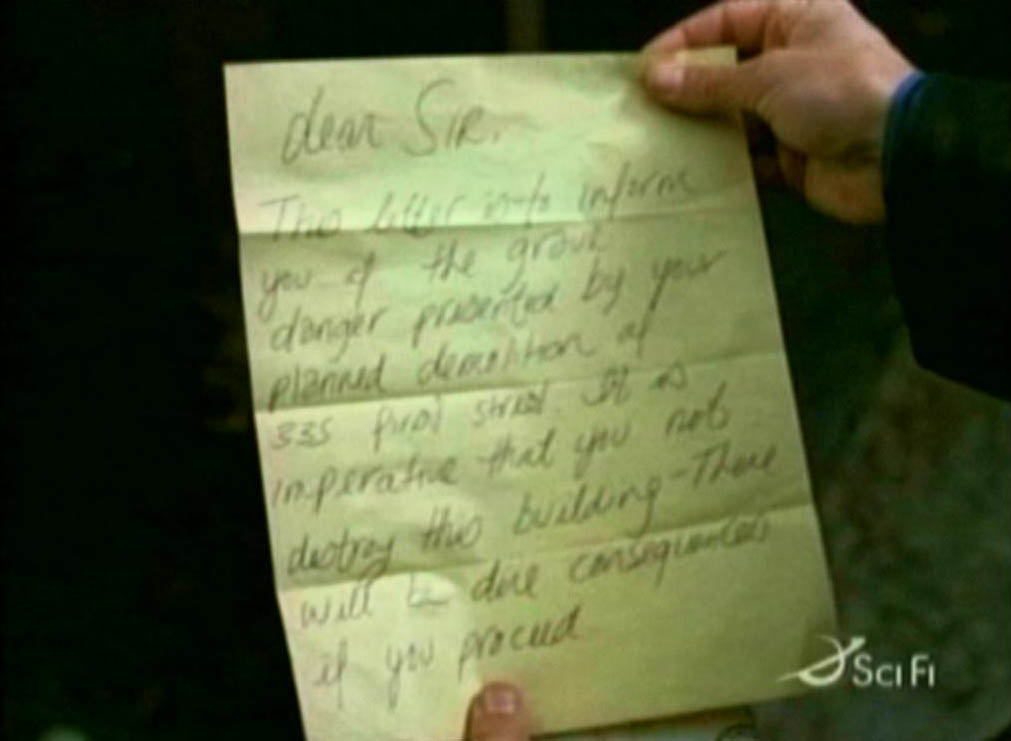 dear SIR.
This letter is to inform
you of the grave
danger presented by your
planned demolition of
335 first street. It is
imperative that you not
destroy this building - There
will be dire consequences
if you proceed
SCI FI